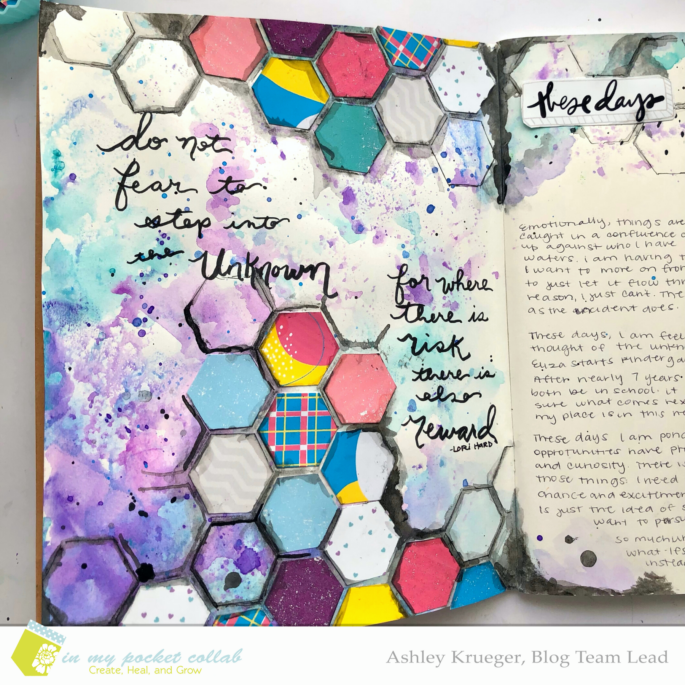 do not
fear to
step into
the Unknown
for where
there is
risk
there is
also
reward
-LORI HARD
these days
Emotionally, things are
caught in a confluence
up against who I have
waters. I am having
I want to more on from
to just let it flow
reason, I just cant. The
as the incident does.
These days, I am
thought of the
Eliza starts Kinderga
After nearly 7 years.
both be in school. it
sure what comes
my place is in this
These days I am
opportunities have
and curiosity There is
those things. I need
chance and
is just the idea of
want to
so much
what if
instea
in my pocket collab
Create, Heal, and Grow
Ashley Krueger, Blog Team Lead